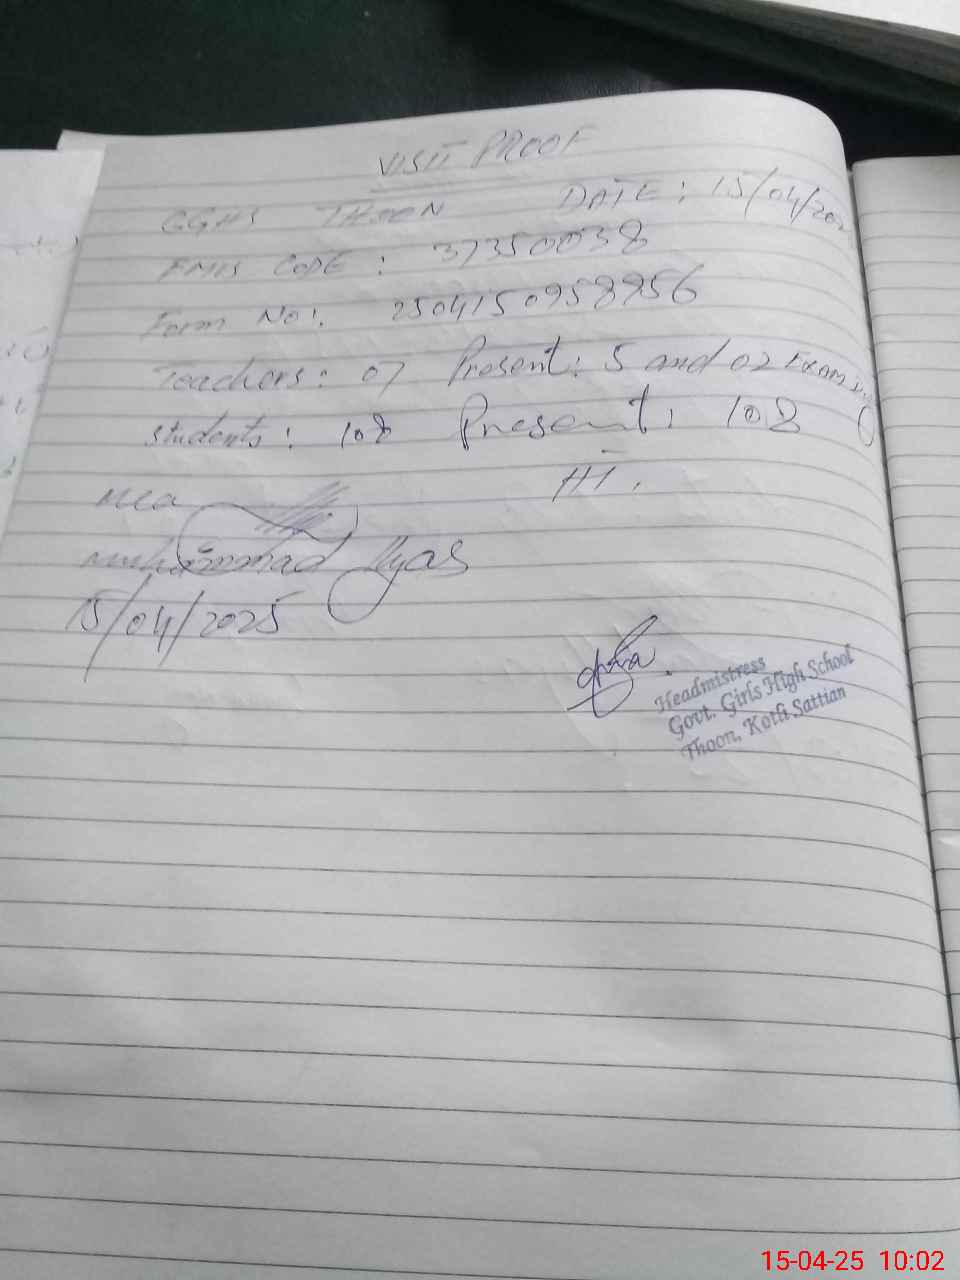 VISIT PROOF
GGHS THOON DATE: 15/04/202
EMIS CODE: 37350038
Form No: 2504150958956
Teachers: 07 Present: 5 and 02 Exam
Students: 108 Present: 108
HT.
MEA
Muhammad Ilyas
15/04/2025
Headmistress
Govt. Girls High School
Thoon, Kotli Sattian
15-04-25 10:02